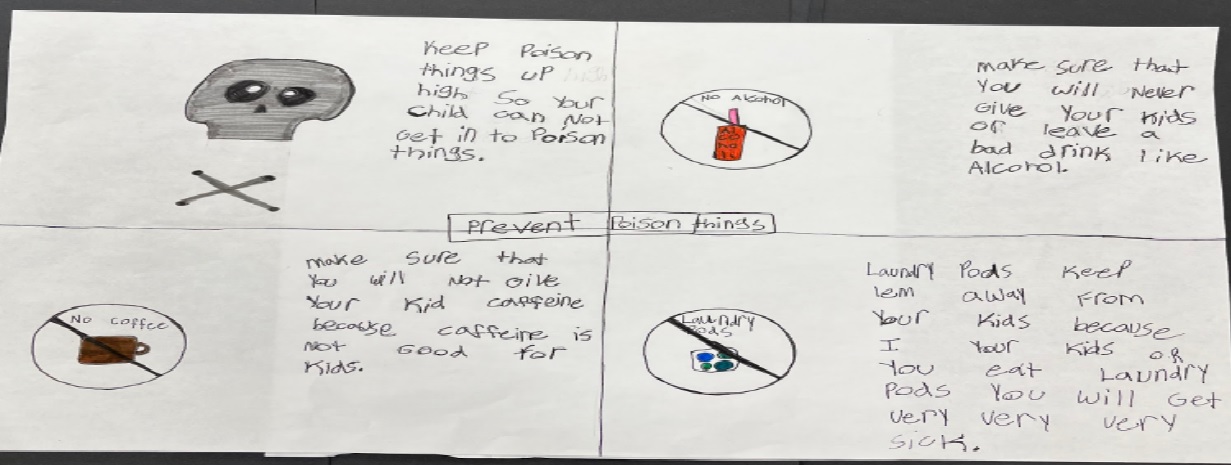 Keep Poison
things up
high so Your
Child can Not
Get in to Poison
things.
No Alcohol
make sure that
You will Never
Give Your Kids
or leave a
bad drink like
Alcohol.
Prevent Poison things
No coffee
make sure that
You will Not Give
Your Kid caffeine
because caffeine is
Not Good for
Kids.
Laundry
Pods
Laundry Pods Keep
lem away From
Your Kids because
I Your Kids OR
You eat Laundry
Pods You will Get
very very very
sick.